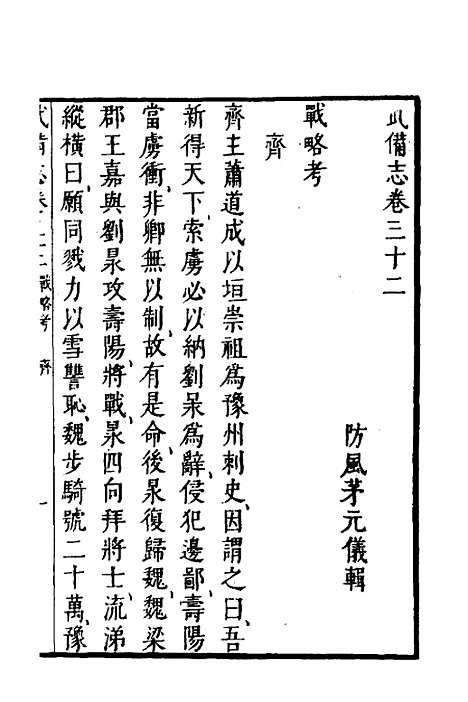 武備志卷三十二
防風茅元儀輯
戰略考
齊
齊主蕭道成以垣崇祖爲豫州刺史、因謂之曰、吾
新得天下索虜必以納劉杲爲辭、侵犯邊鄙、壽陽
當虜衝、非卿無以制、故有是命、後杲復歸魏、魏梁
郡王嘉與劉杲攻壽陽、將戰、杲四向拜將士、流涕
縱橫曰、願同戮力以雪讐恥、魏步騎號二十萬、豫
武備志卷三十二 戰略考 齊 一